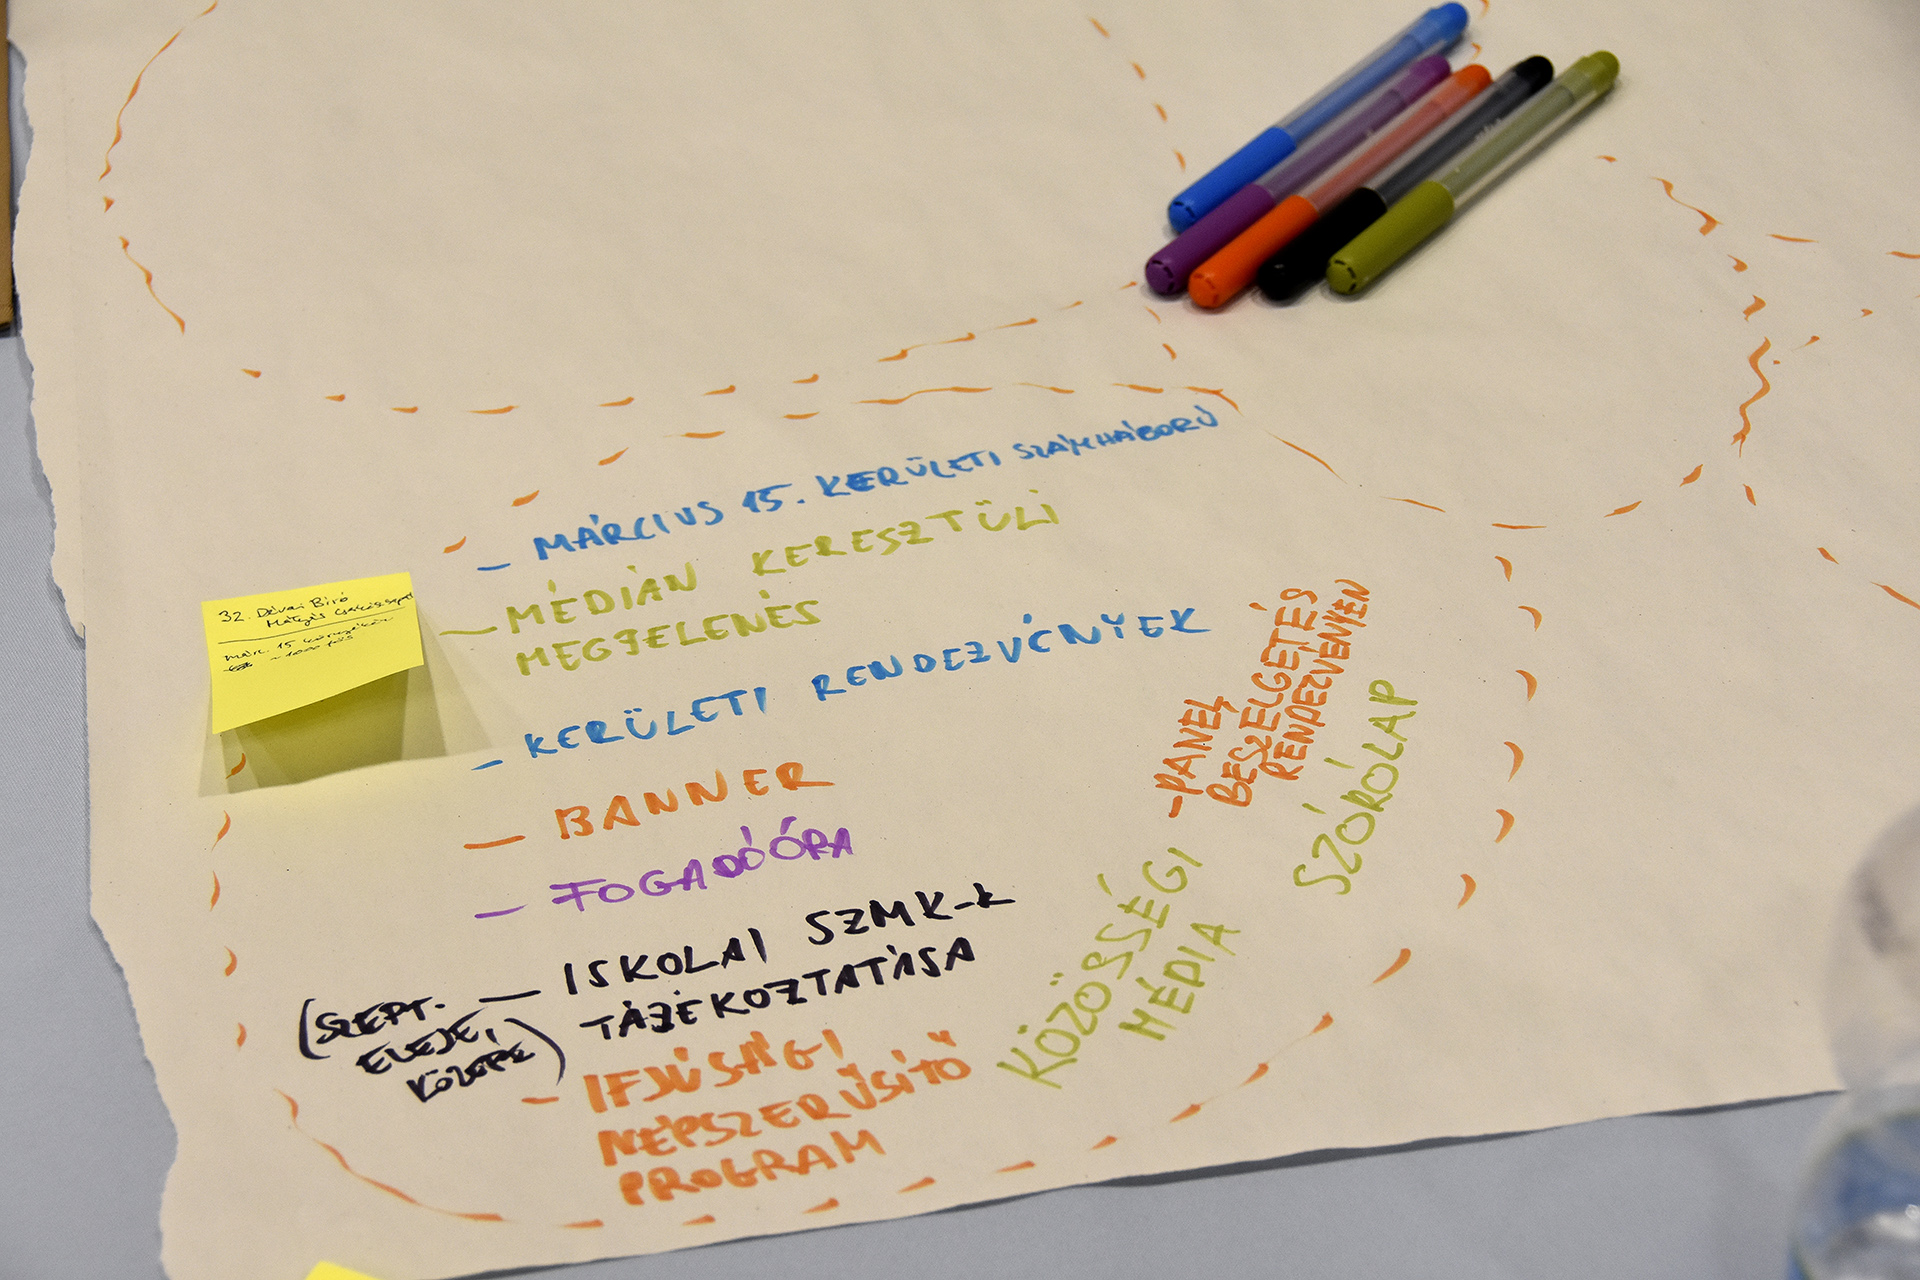 - MÁRCIUS 15. KERÜLETI SZÁMHÁBORÚ
- MÉDIÁN KERESZTÜLI
MEGJELENÉS
- KERÜLETI RENDEZVÉNYEK
- BANNER
- FOGADÓÓRA
- ISKOLAI SZMK-K
TÁJÉKOZTATÁSA
(SZEPT.
ELEJE,
KÖZEPE)
- IFJÚSÁGI
NÉPSZERŰSÍTŐ
PROGRAM
- PANEL
BESZÉLGETÉS
RENDEZVÉNYEN
SZÓRÓLAP
KÖZÖSSÉGI
MÉDIA
32. Dévai Bíró
Mátyás
márc. 15